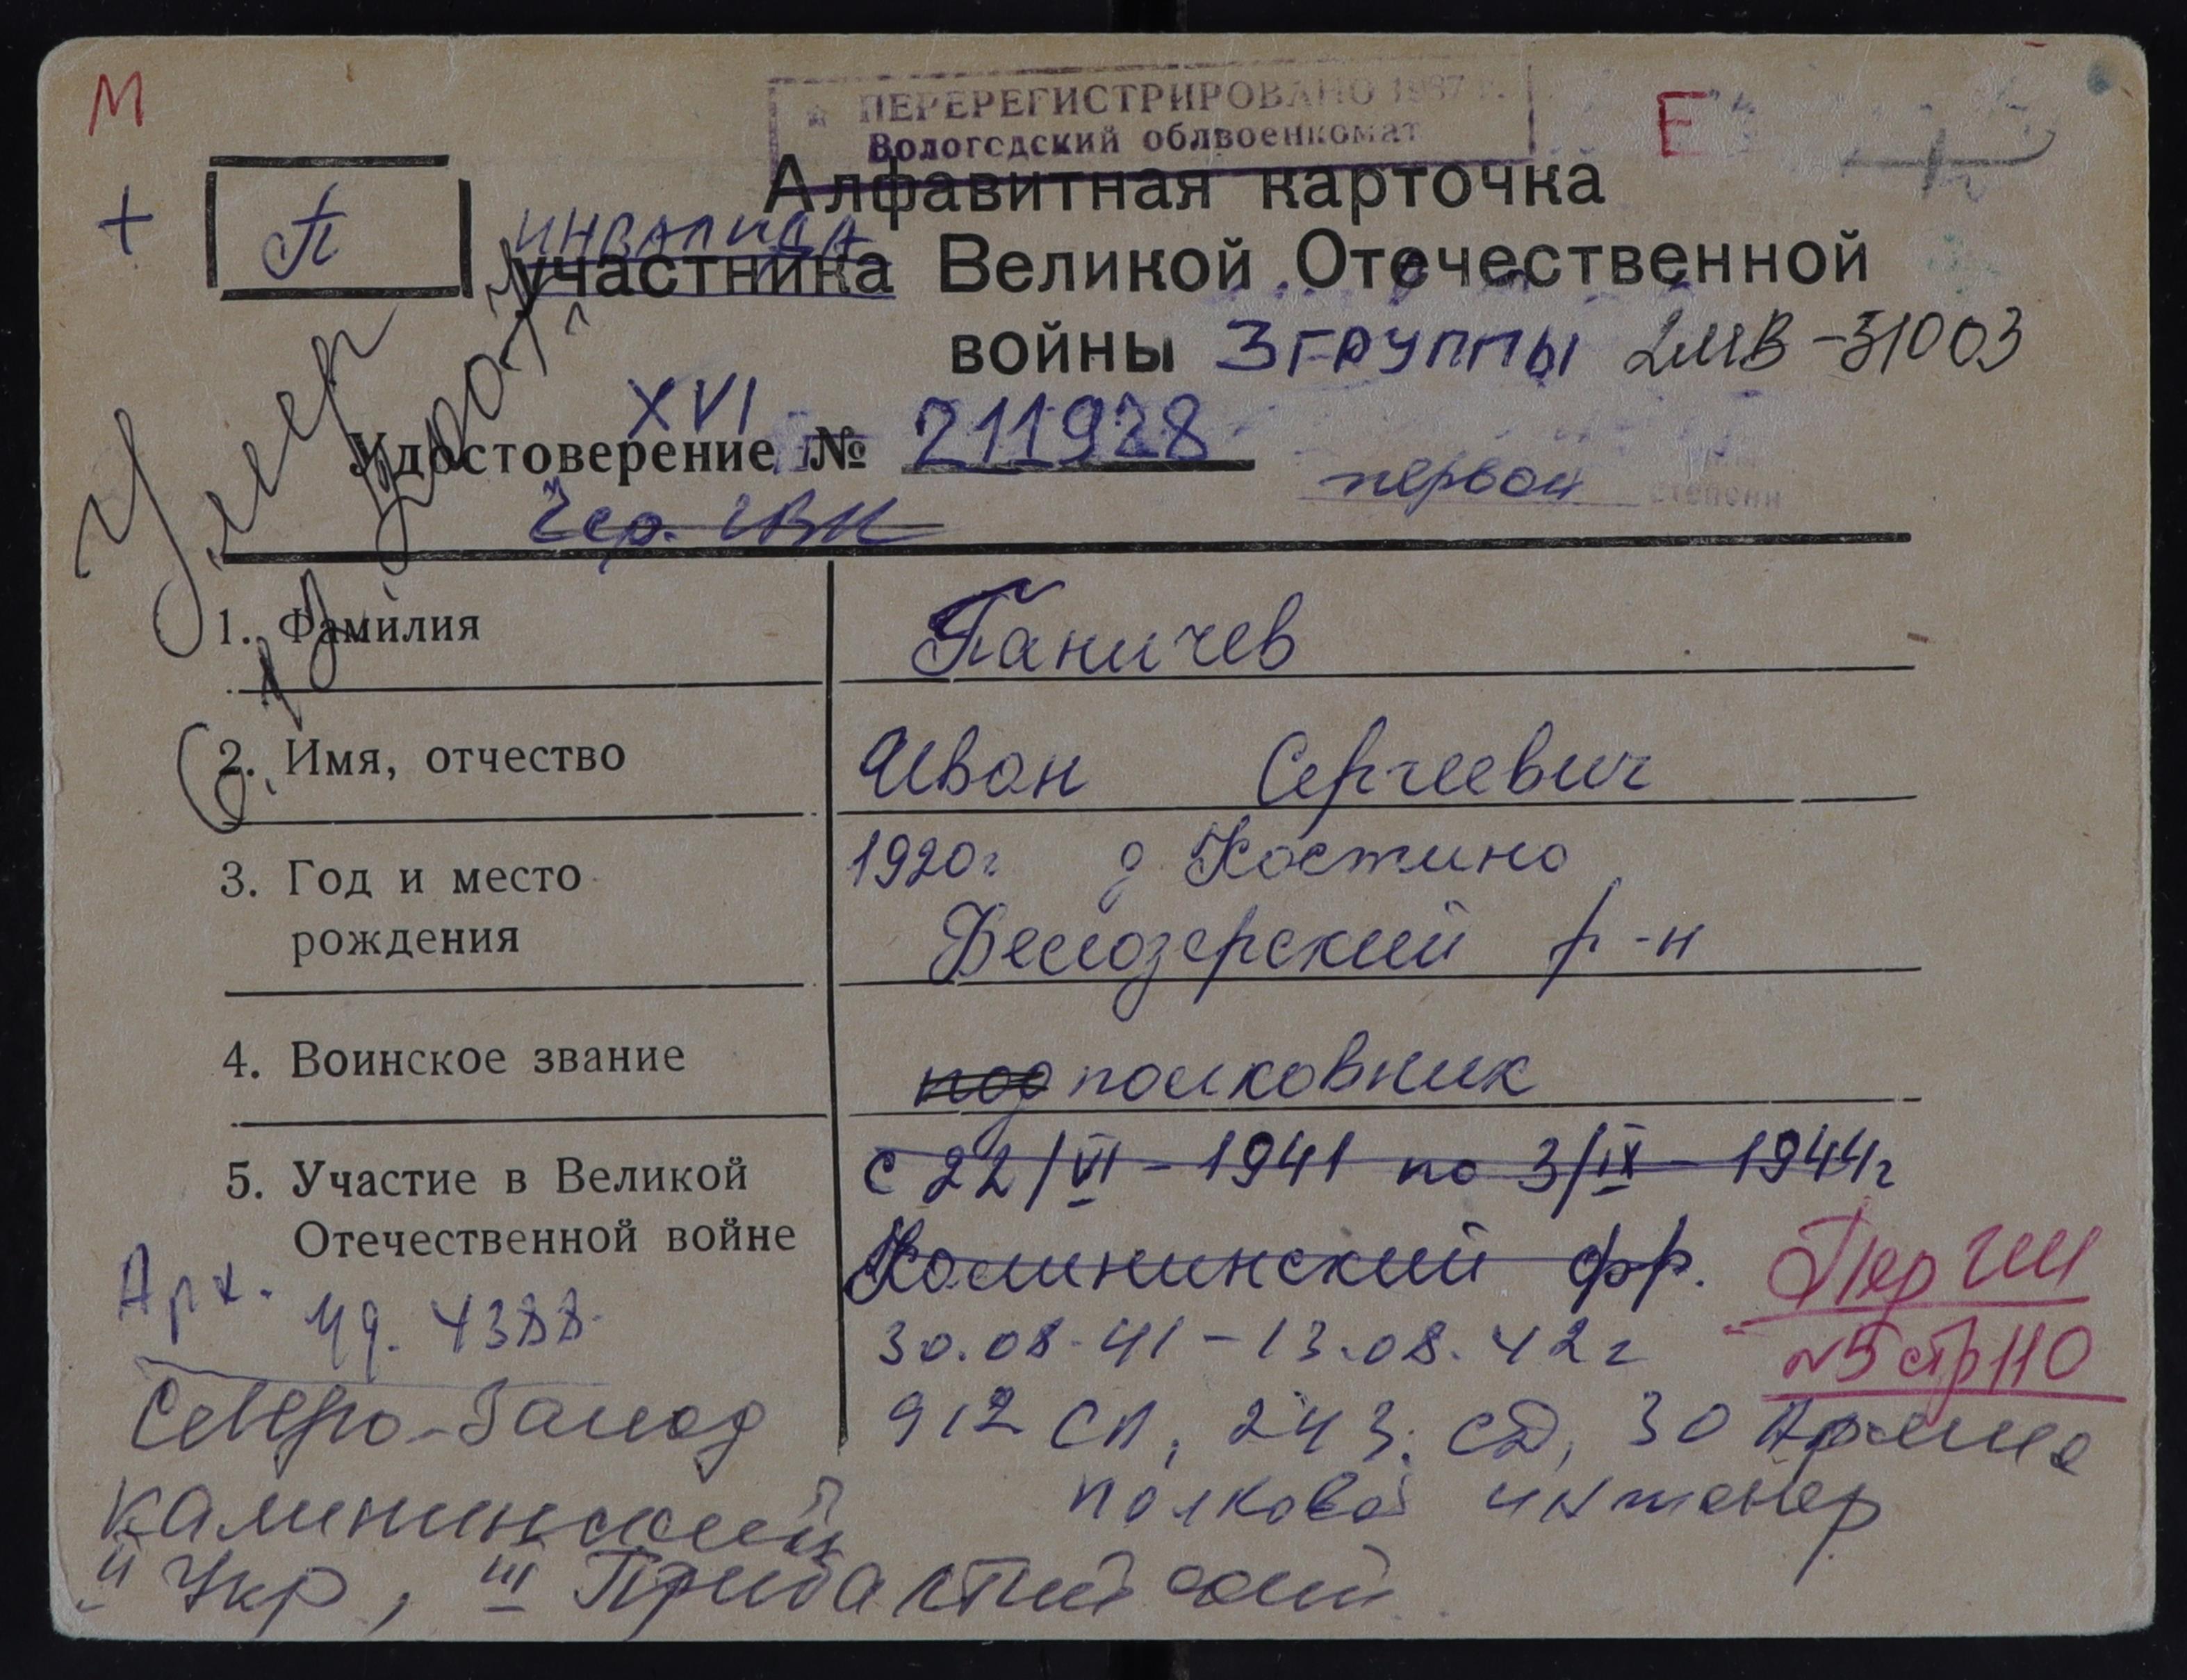 М
ПЕРЕРЕГИСТРИРОВАНО 1987 г.
Вологодский облвоенкомат
Е
+
П
Алфавитная карточка
инвалида
участника Великой Отечественной
войны 3 группы 2МВ-31003
XVI
Удостоверение № 211928
первой степени
Чер. ГВК
Умер
1. Фамилия
Паничев
2. Имя, отчество
Иван Сергеевич
3. Год и место
рождения
1920г д Костино
Белозерский р-н
4. Воинское звание
под полковник
5. Участие в Великой
Отечественной войне
с 22/VI-1941 по 3/IX-1944г
Калининский фр.
30.08.41-13.08.42г
912 СП, 243 СД, 30 Армия
полковой инженер
№5 стр 110
Арх.
4388
Северо-Запад
Калининский
II Укр, III Прибалтийский